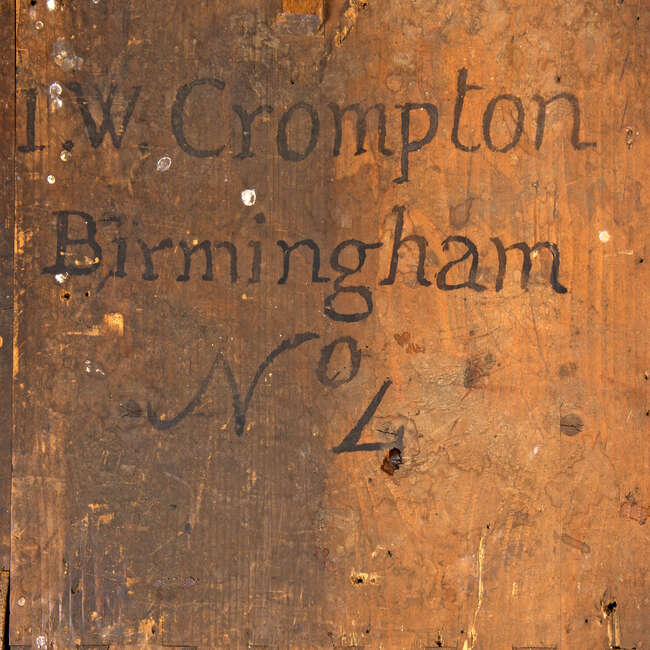 I.W. Crompton
Birmingham
No 4